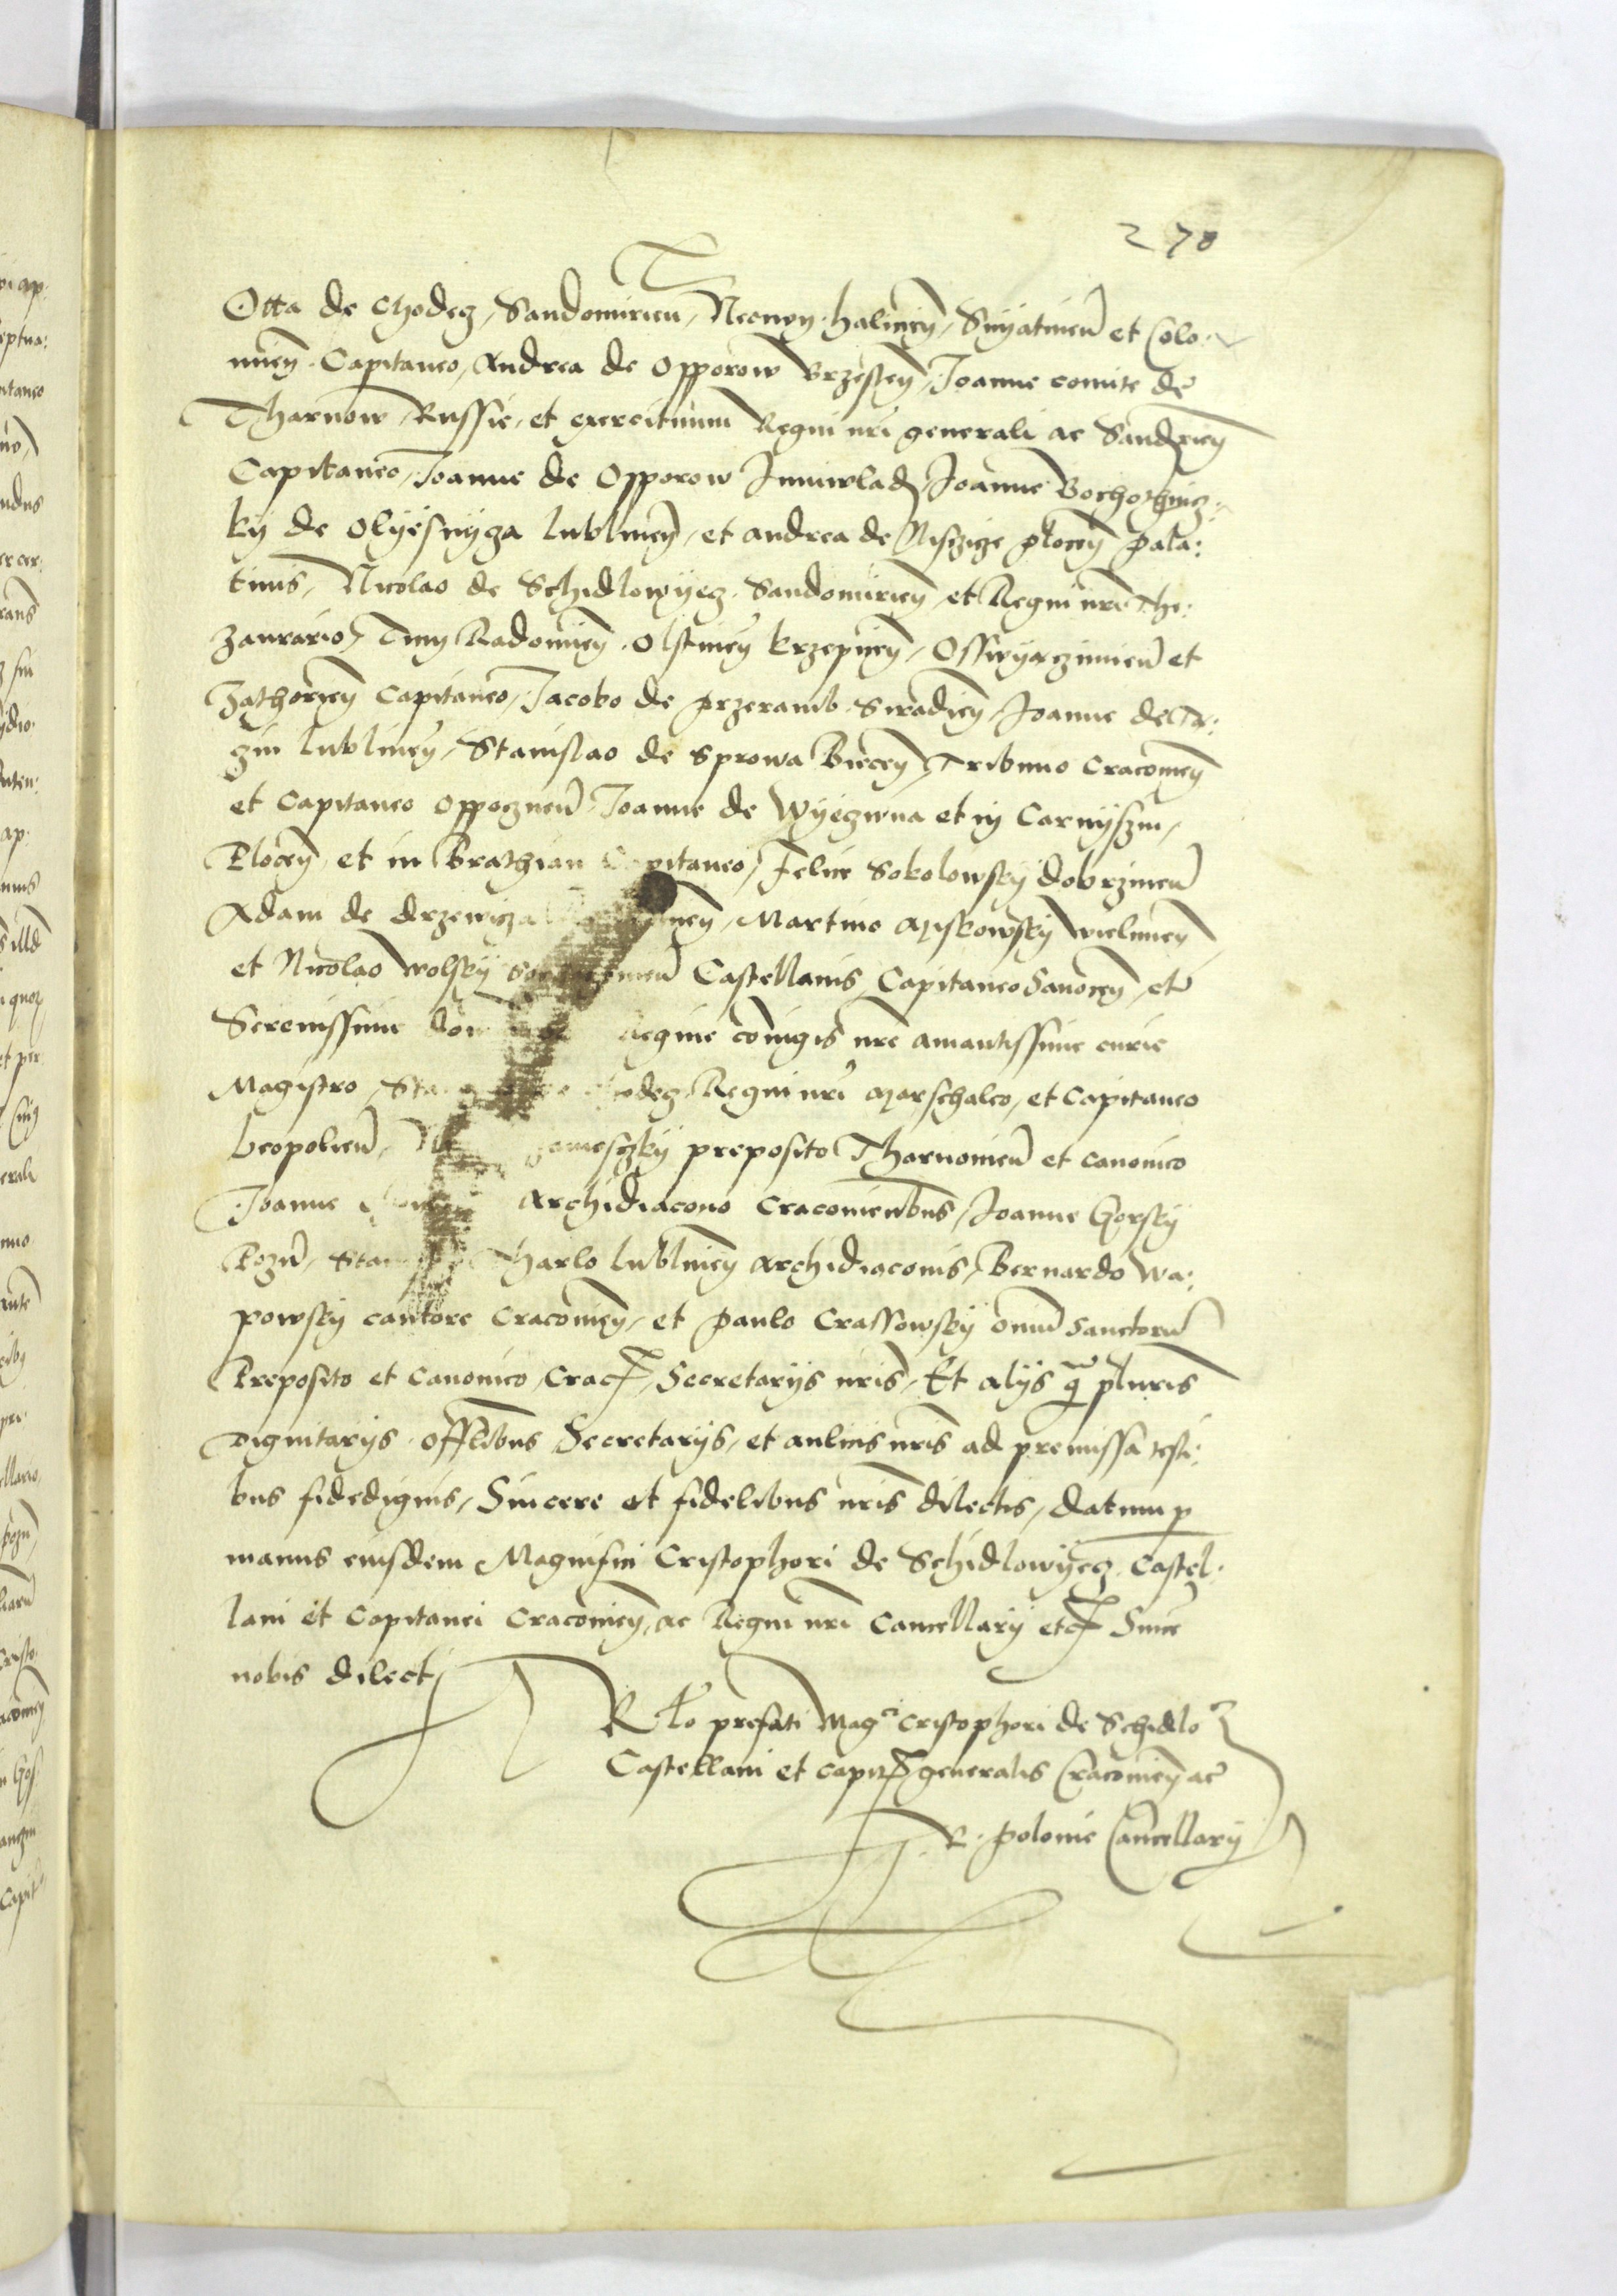 270
Otta de Chodecz, Sandomirien, Necnon halicien, Snyatinen et Colo-
mien. Capitaneo, Andrea de Opporow Brzesten, Joanne comite de
Tharnow, Russie, et exercituum Regni nri generali ac Sandecien
Capitaneo, Joanne de Opporow Juniwladi, Joanne Bochothnicz:
ky de Olyesnycza lublinen, et andrea de Nisczicze plocen pala:
tinis, Nicolao de Schidlowyecz. Sandomirien, et Regni nri The:
zaurario, Tum Radomien. Olstinen krzepicen, Osswyaczimien et
Zathorien Capitaneo, Jacobo de przeramb. Siradien, Joanne de Ta:
czin lublinen, Stanislao de Sprowa Biecen, Tribuno Cracomien
et Capitaneo Oppocznen. Joanne de Wyeczwna et in Carnyszin,
Plocen, et in Brathian Capitaneo, Felice Sokolowsky dobrzinen
Adam de drzewicza Martino Myskowsky wielunen
et Nicolao wolsky Castellanis, Capitaneo Sanocen, et
Serenissime Regine coniugis nre amantissime curie
Magistro, Regni nri Marschalco, et Capitaneo
Leopolien, preposito Tharnovien et canonico
Joanne Archidiacono Cracovienbus, Joanne Gorsky
Pozn, Tharlo lublinen Archidiaconis, Bernardo Wa:
powsky cantore Cracovien, et paulo Crassowsky omniu Sanctoru
Preposito et Canonico, Crac, Secretariis nris, Et aliis q pluris
dignitariis. offlibus Secretariis, et aulicis nris ad premissa testi:
bus fidedignis, Sincere et fidelibus nris dilectis, datum p
manus eiusdem Magnifici Cristophori de Schidlowyecz. Castel:
lani et Capitanei Cracovien, ac Regni nri Cancellarij etc Since
nobis dilecti
Rlo prefati Mag Cristophori de Schidlo
Castellani et capit generalis Cracovien ac
R. polonie Cancellarij